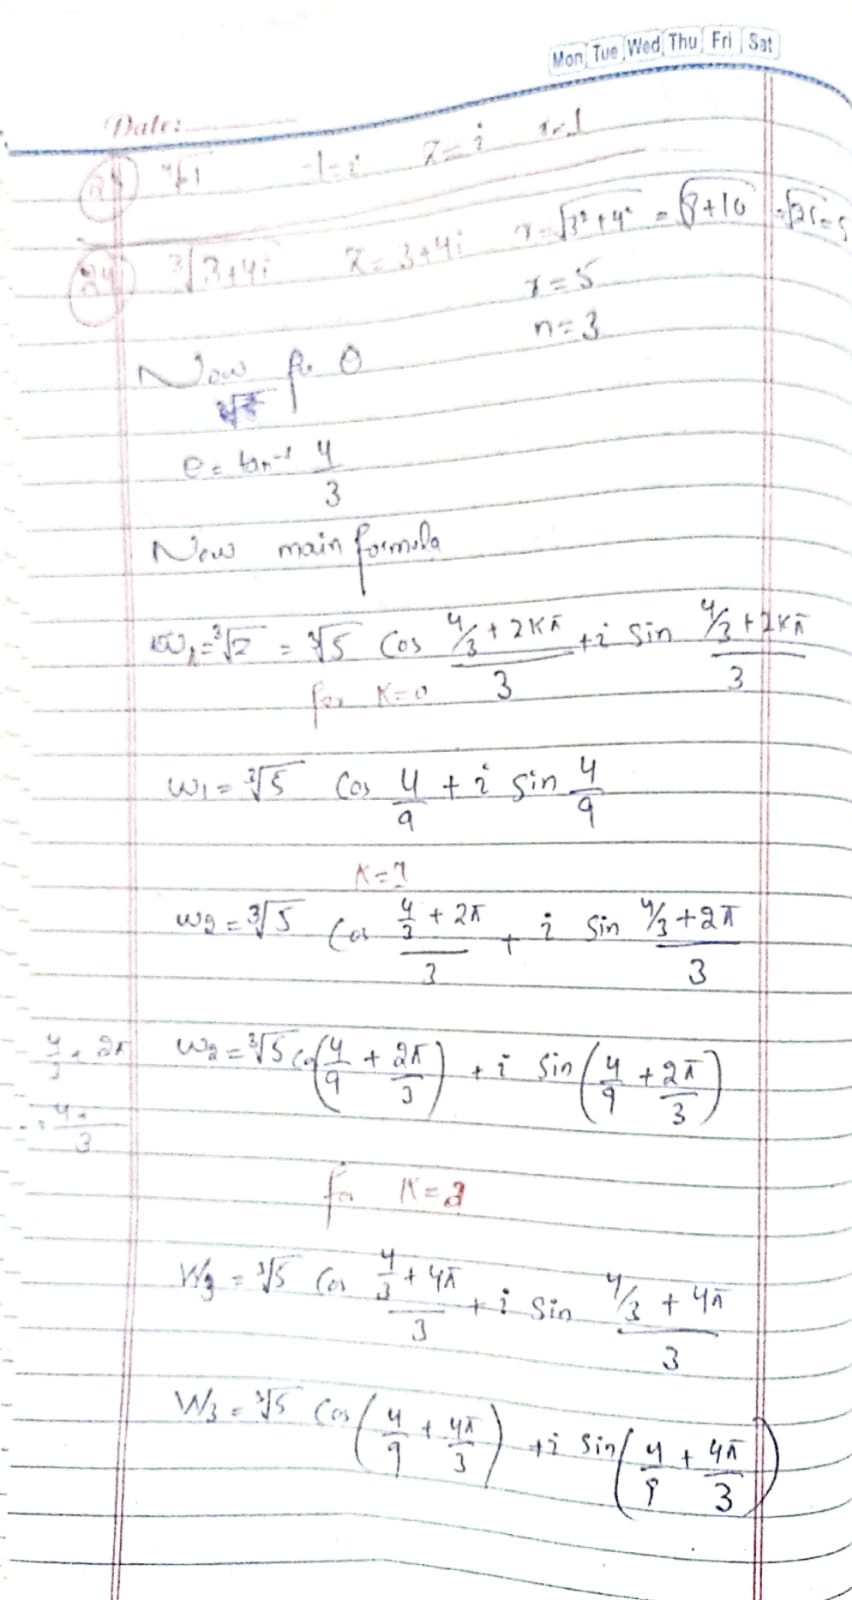 Mon Tue Wed Thu Fri Sat
Date:
-1=i z=i r=1
24 ∛3+4i z=3+4i r=√3²+4² = √9+16 =√25=5
r=5
n=3
Now for θ
θ= tan⁻¹ 4/3
Now main formula
w₁=∛z = ∛5 Cos (4/3 + 2Kπ)/3 +i Sin (4/3 + 2Kπ)/3
for K=0
w₁ = ∛5 Cos 4/9 + i sin 4/9
K=1
w₂ = ∛5 Cos (4/3 + 2π)/3 + i Sin (4/3 + 2π)/3
4/3 + 2π
w₂ = ∛5 cos(4/9 + 2π/3) + i Sin (4/9 + 2π/3)
for K=2
W₃ = ∛5 Cos (4/3 + 4π)/3 + i Sin (4/3 + 4π)/3
W₃ = ∛5 Cos (4/9 + 4π/3) +i Sin (4/9 + 4π/3)